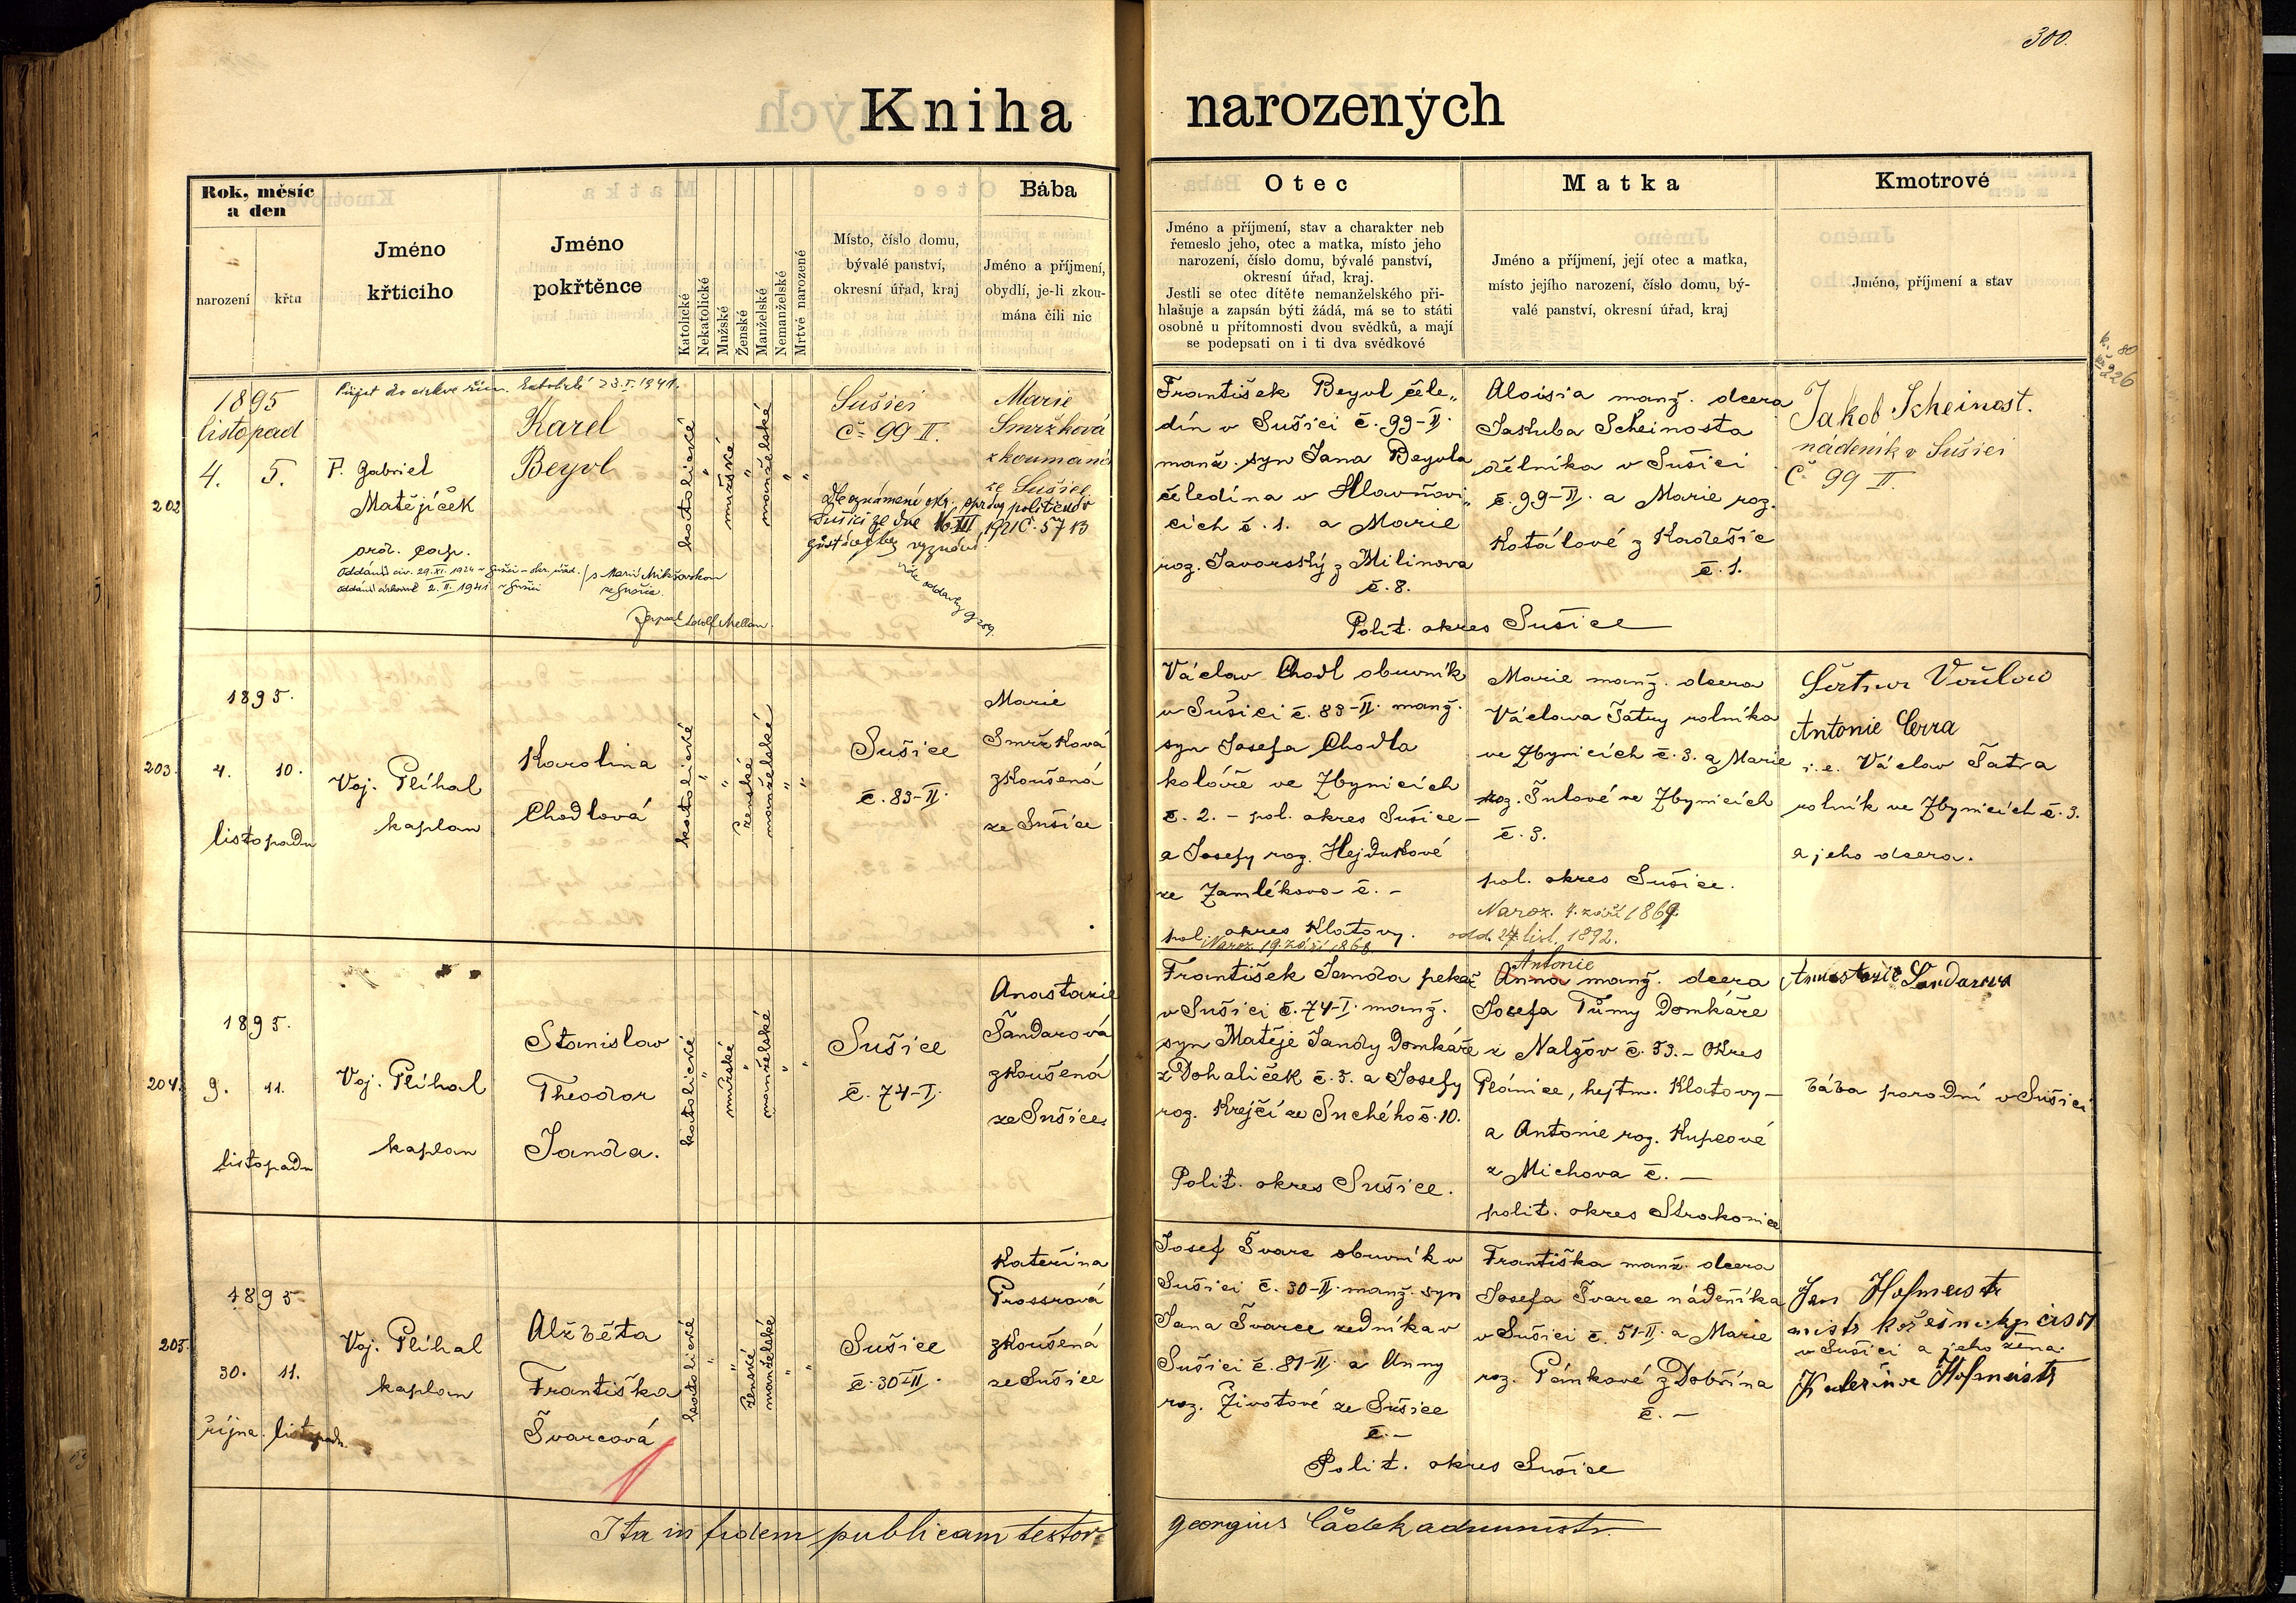 300.
Kniha narozených
Rok, měsíc a den
narození
křtu
Jméno křtícího
Jméno pokřtěnce
Katolické
Nekatolické
Mužské
Ženské
Manželské
Nemanželské
Mrtvě narozené
Místo, číslo domu,
bývalé panství,
okresní úřad, kraj
Bába
Jméno a příjmení,
obydlí, je-li zkou-
mána čili nic
Otec
Jméno a příjmení, stav a charakter neb
řemeslo jeho, otec a matka, místo jeho
narození, číslo domu, bývalé panství,
okresní úřad, kraj.
Jestli se otec dítěte nemanželského při-
hlašuje a zapsán býti žádá, má se to státi
osobně u přítomnosti dvou svědků, a mají
se podepsati on i ti dva svědkové
Matka
Jméno a příjmení, její otec a matka,
místo jejího narození, číslo domu, bý-
valé panství, okresní úřad, kraj
Kmotrové
Jméno, příjmení a stav
202
1895
listopad
4. 5.
Přijat do církve řím. katolické 23.I.1941.
P. Gabriel
Matějíček
ord. cap.
Oddáni civ. 29.XI.1924 v Sušici – okr. úřad.
oddáni církevně 2.II.1941 v Sušici
s Marií Mikšovskou
ze Sušice.
Karel
Beyvl
katolické
mužské
manželské
Sušici
Č 99 II.
Marie
Smržková
zkoumaná
ze Sušice
dle oznámení okr. správy politické v
Sušici ze dne 16.III.1921 č. 57 B
zůstává bez vyznání.
František Beyvl čele„
dín v Sušici č. 99–II.
manž. syn Jana Beyvla
čeledína v Hlavňovi„
cích č. 1. a Marie
roz. Javorský z Milínova
č. 8.
Aloisia manž. dcera
Jakuba Scheinosta
dělníka v Sušici
č. 99–II. a Marie roz.
Kotálové z Kadešic
č. 1.
Polit. okres Sušice
Jakob Scheinost.
nádeník v Sušici
Č 99 II.
k. 80
226
203.
1895.
4. 10.
listopadu
Voj. Plíhal
kaplan
Karolina
Chodlová
katolické
ženské
manželské
Sušice
č. 83–II.
Marie
Smržková
zkoušená
ze Sušice
Václav Chodl obuvník
v Sušici č. 83–II. manž.
syn Josefa Chodla
koláře ve Zbynicích
č. 2. – pol. okres Sušice –
a Josefy roz. Hejdukové
ze Zamlékova č. –
pol. okres Klatovy.
Naroz. 19. září 1868
Marie manž. dcera
Václava Šatry rolníka
ve Zbynicích č. 3. a Marie
roz. Šulové ve Zbynicích
č. 3.
pol. okres Sušice.
Naroz. 4. září 1869.
odd. 24 list. 1892.
Antonie
i. e. Václav Šatra
rolník ve Zbynicích č. 3.
a jeho dcera.
204.
1895.
9. 11.
listopadu
Voj. Plíhal
kaplan
Stanislav
Theodor
Janda.
katolické
mužské
manželské
Sušice
č. 74–I.
Anastazie
Šandarová
zkoušená
ze Sušice
František Janda pekař
v Sušici č. 74–I. manž.
syn Matěje Jandy domkáře
z Dohaliček č. 5. a Josefy
roz. Krejčí ze Suchého č. 10.
Polit. okres Sušice.
Antonie
Anna manž. dcera
Josefa Tůmy domkáře
z Nalžov č. 53. – okres
Plánice, hejtm. Klatovy –
a Antonie roz. Kupcové
z Michova č. –
polit. okres Strakonice
Anastazie Šandarova
bába porodní v Sušici
205.
1895
30. 11.
října. listopadu.
Voj. Plíhal
kaplan
Alžběta
Františka
Švarcová
katolické
ženské
manželské
Sušice
č. 30–II.
Kateřina
Prossrová
zkoušená
ze Sušice
Josef Švarc obuvník v
Sušici č. 30–II. manž. syn
Jana Švarce zedníka v
Sušici č. 81–II. a Anny
roz. Životové ze Sušice
č. –
Františka manž. dcera
Josefa Švarce nádeníka
v Sušici č. 51–II. a Marie
roz. Pánkové z Dobřína
č. –
Polit. okres Sušice
Jan Hofmeistr
v Sušici a jeho žena.
Kateřina Hofmeistr
Ita in fidem publicam testor
Georgius Čádek administr.